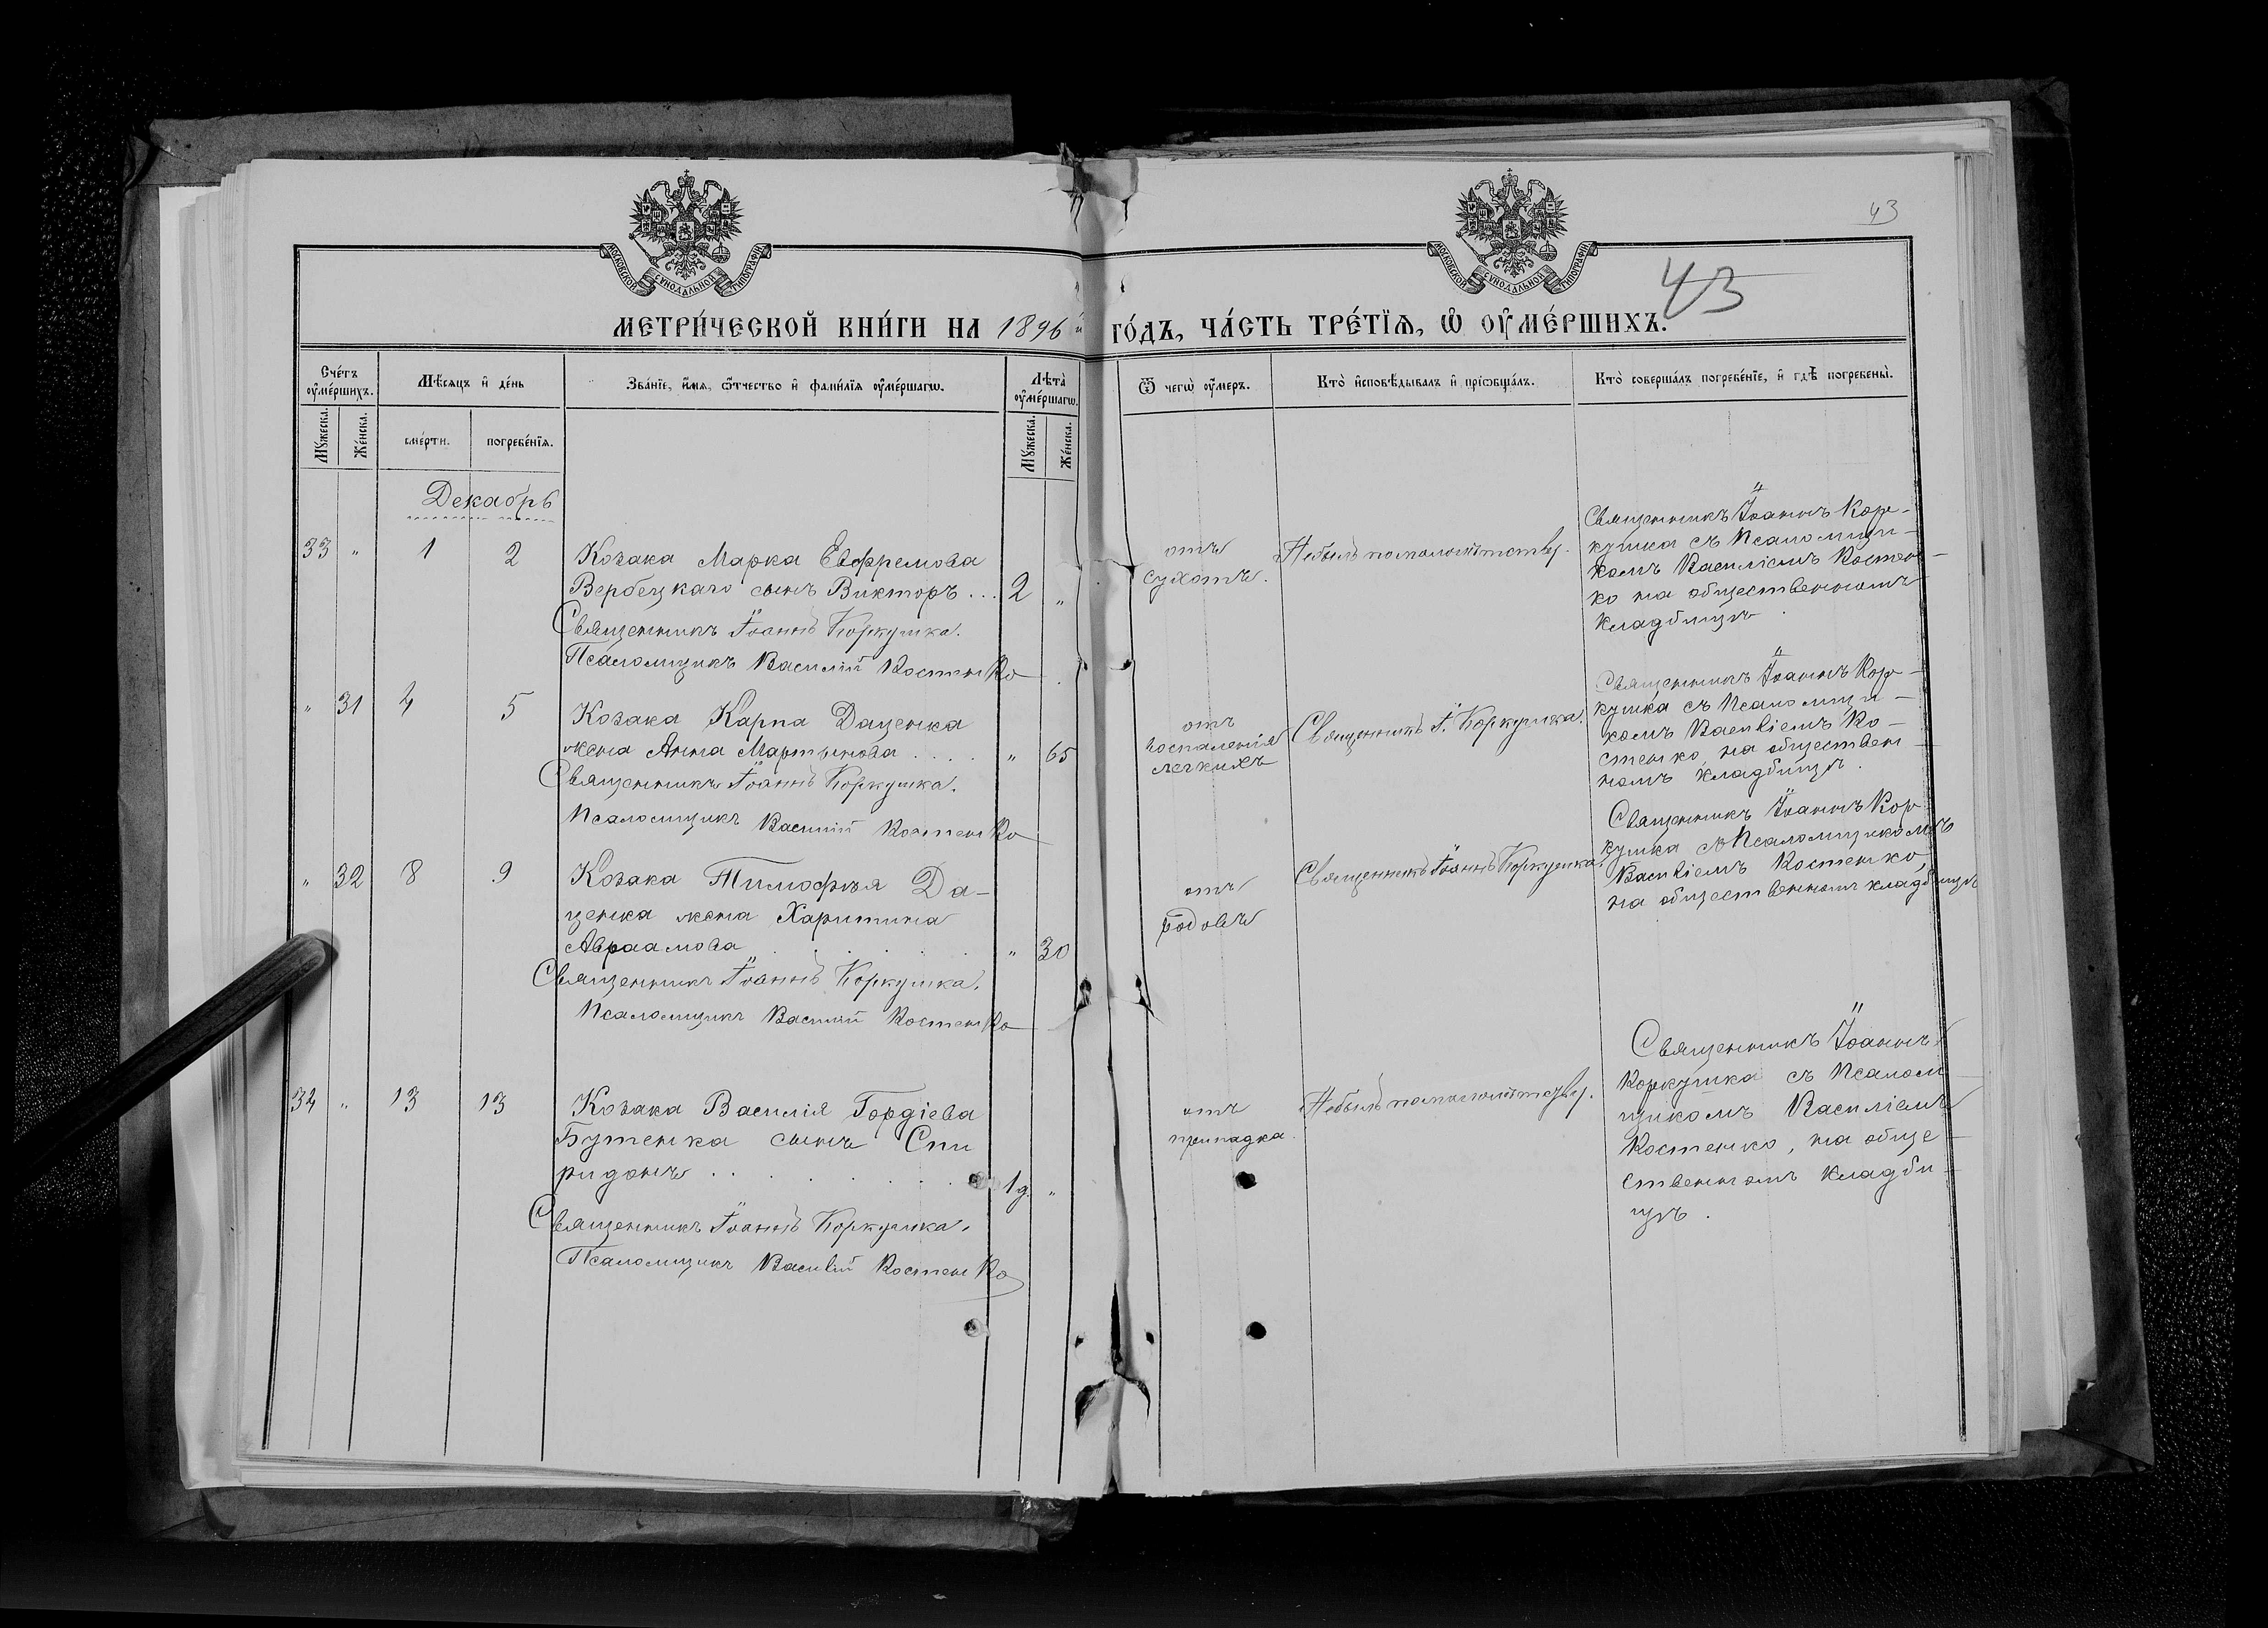 43
МОСКОВСКОЙ СУНОДАЛЬНОЙ ТИПОГРАФІИ
МОСКОВСКОЙ СУНОДАЛЬНОЙ ТИПОГРАФІИ
43
МЕТРИ́ЧЕСКОЙ КНИ́ГИ НА 1896 й ГО́ДЪ, ЧА́СТЬ ТРЕ́ТЇѦ, Ѡ҆ ОУ҆МЕ́РШИХЪ.
Сче́тъ оу҆ме́ршихъ.
Мѣ́сѧцъ и҆ де́нь
Зва́нїе, и҆́мѧ, ѻ҆́тчество и҆ фами́лїѧ оу҆ме́ршагѡ.
Лѣта̀ оу҆ме́ршагѡ.
Ѿ чегѡ̀ оу҆́меръ.
Кто̀ и҆сповѣ́дывалъ и҆ прїѡбща́лъ.
Кто̀ соверша́лъ погребе́нїе, и҆ гдѣ̀ погребены̀.
Мꙋ́жеска. Же́нска.
сме́рти. погребе́нїѧ.
Мꙋ́жеска. Же́нска.
Декабрь
33 " 1 2
Козака Марка Евфремова
Вербецкаго сынъ Викторъ . . . 2 "
Священникъ Іоаннъ Коркушка.
Псаломщикъ Василій Костенко
отъ
сухотъ.
Небылъ по малолѣтству.
Священникъ Іоаннъ Кор-
кушка съ Псаломщи-
комъ Василіемъ Костен-
ко на общественномъ
кладбищѣ.
" 31 4 5
Козака Карпа Даценка
жена Анна Мартынова . . . . " 65
Священникъ Іоаннъ Коркушка.
Псаломщикъ Василій Костенко
отъ
воспаленія
легкихъ
Священникъ І. Коркушка.
Священникъ Іоаннъ Кор-
кушка съ Псаломщи-
комъ Василіемъ Ко-
стенко, на обществен-
номъ кладбищѣ.
" 32 8 9
Козака Тимофея Да-
ценка жена Харитина
Авраамова . . . . . " 30
Священникъ Іоаннъ Коркушка.
Псаломщикъ Василій Костенко
отъ
родовъ
Священникъ Іоаннъ Коркушка.
Священникъ Іоаннъ Кор
кушка съ Псаломщикомъ
Василіемъ Костенко,
на общественномъ кладбищѣ
34 " 13 13
Козака Василія Гордіева
Бутенка сынъ Спи
ридонъ . . . . . . . 1 д. "
Священникъ Іоаннъ Коркушка.
Псаломщикъ Василій Костенко
отъ
припадка.
Небылъ по малолѣтству.
Священникъ Іоаннъ
Коркушка съ Псалом-
щикомъ Василіемъ
Костенко, на обще-
ственномъ кладби-
щѣ.